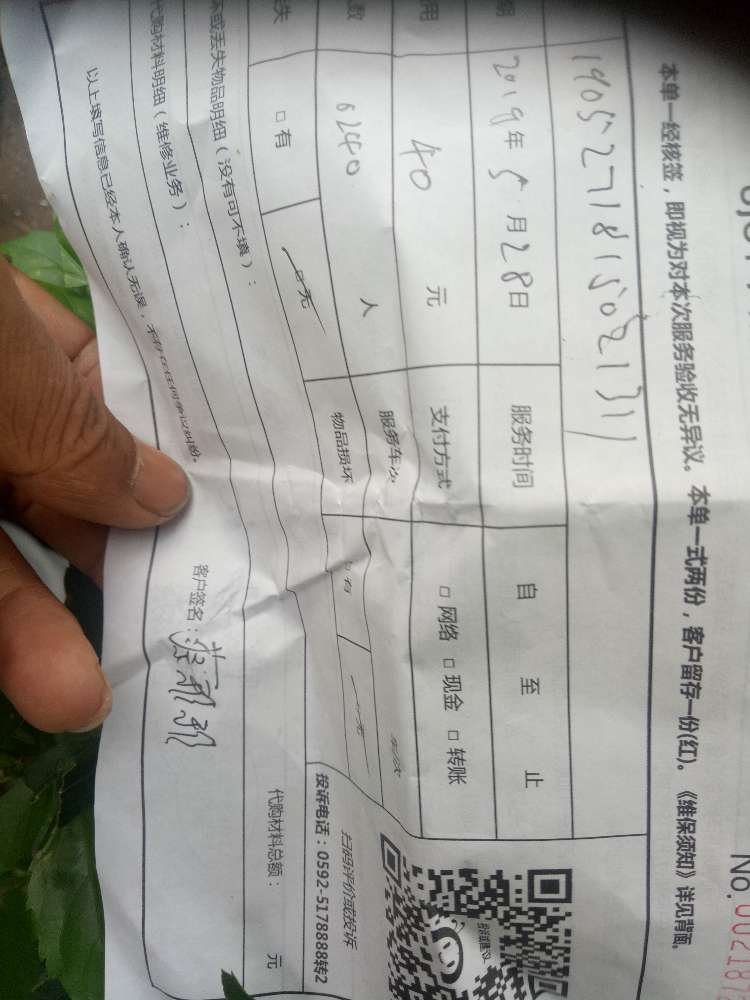 No.002187
本单一经核签，即视为对本次服务验收无异议。本单一式两份，客户留存一份(红)。《维保须知》详见背面。
1905271815021311
期 2019年5月28日 服务时间 自 至 止
用 40 元 支付方式 □ 网络 □ 现金 □ 转账
数 6240 人 服务车次
失 □ 有 □ 无 物品损坏 □ 有 □ 无
坏或丢失物品明细（没有可不填）：
扫码评价或投诉
投诉电话：0592-5178888转2
代购材料明细（维修业务）：
代购材料总额： 元
以上填写信息已经本人确认无误，不存在任何争议纠纷。
客户签名：